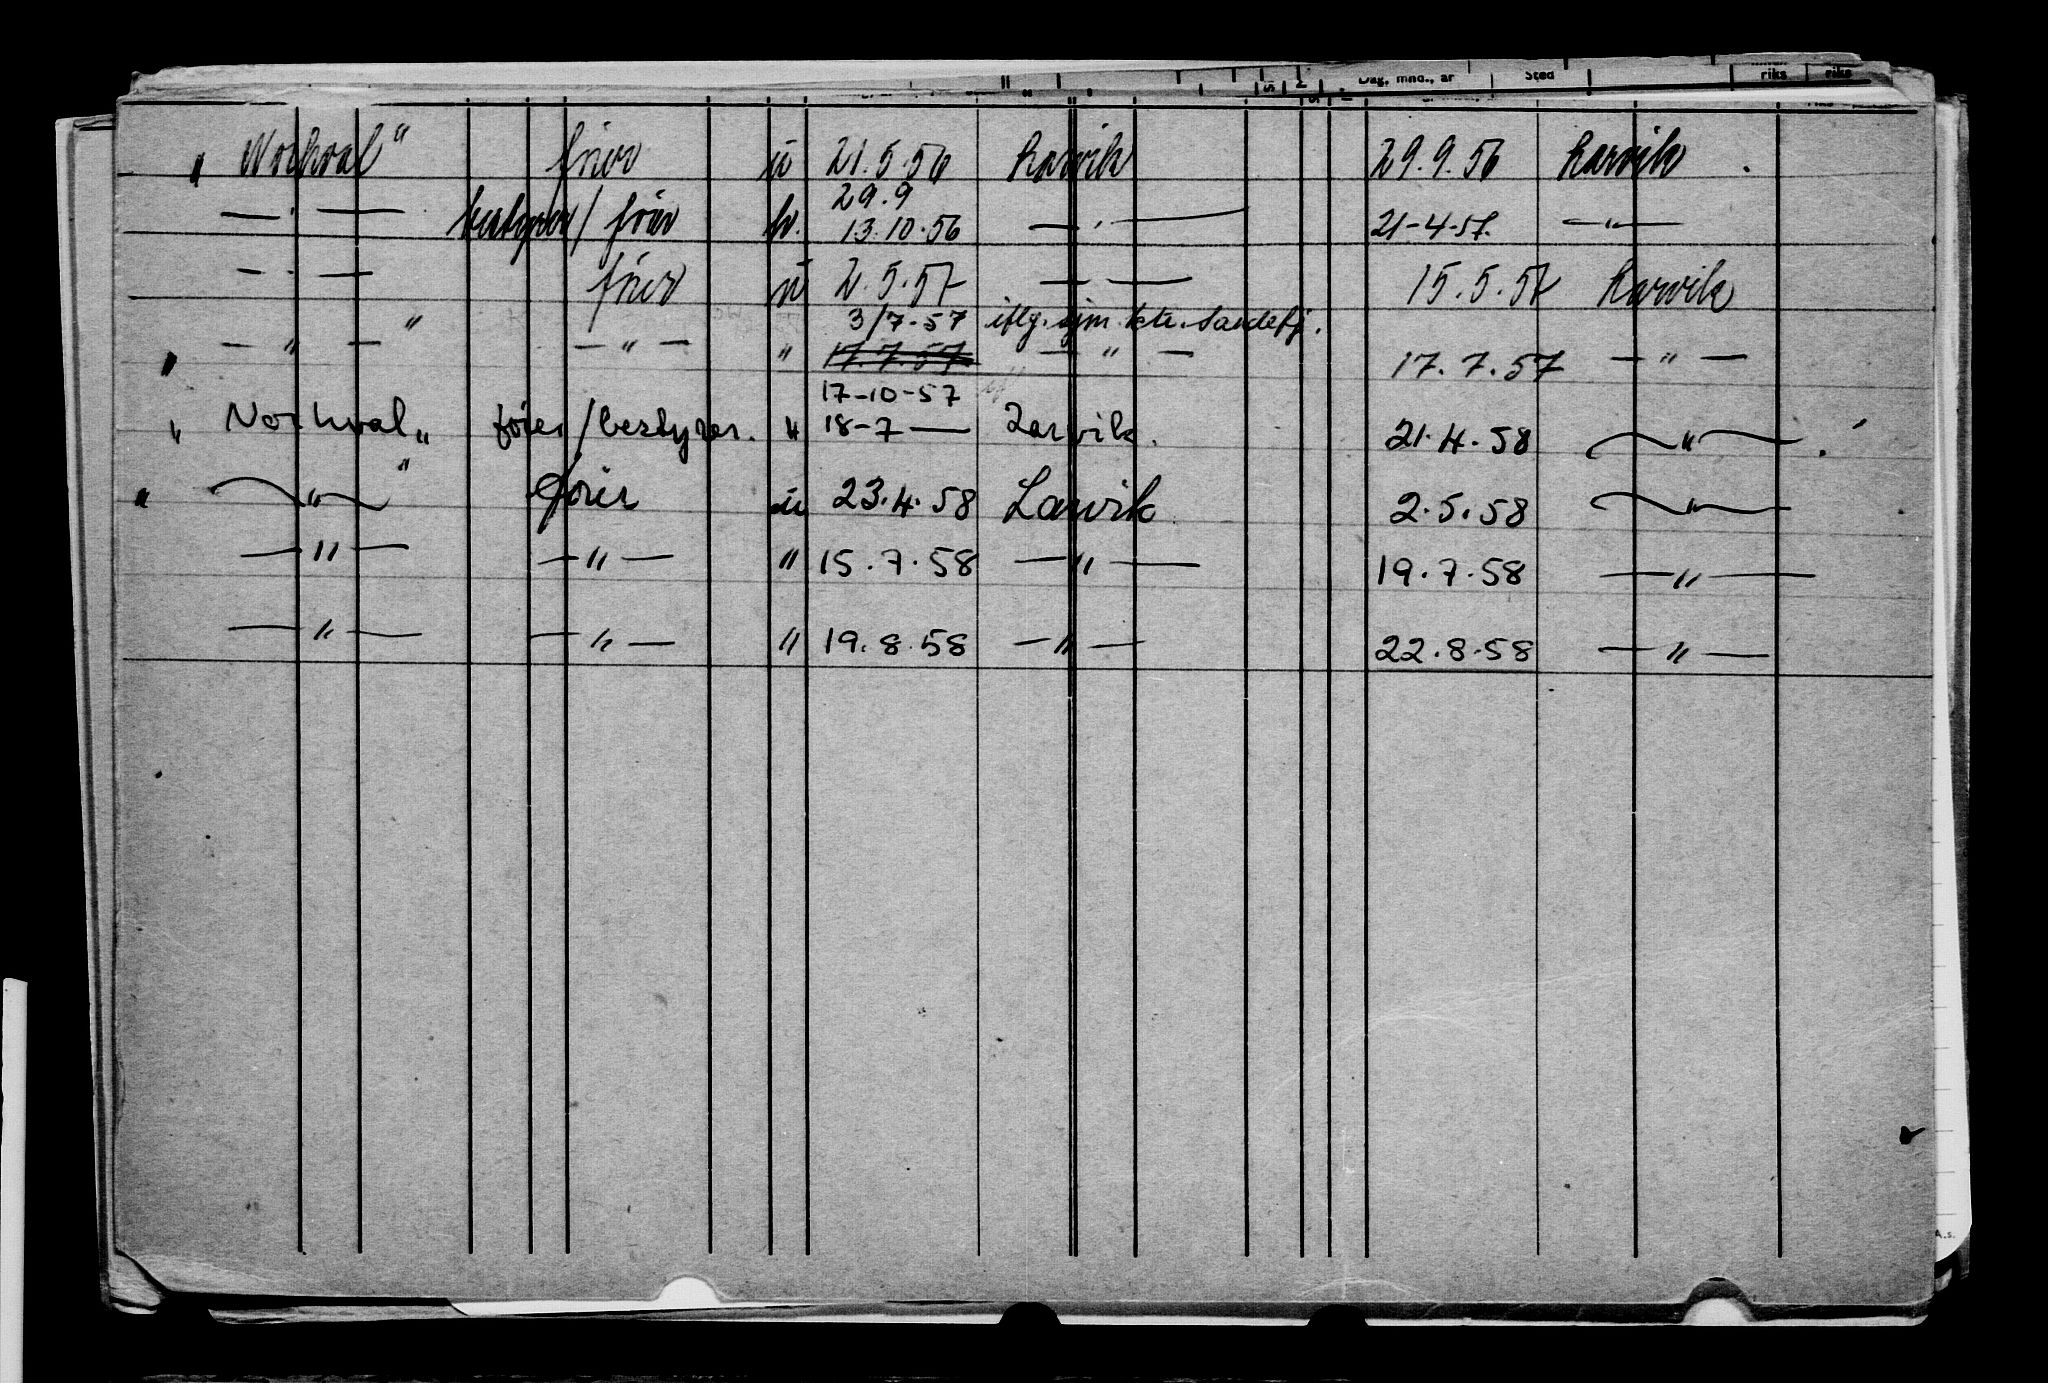 Dag, mnd., år Sted riks riks
„ Norhval" fører u 21.5.56 Larvik 29.9.56 Larvik
29.9
— " — bestyrer / fører u. 13.10.56 — " — 21-4-57. — " —
— " — fører u 2.5.57 — " — 15.5.57 Larvik
" 3/7-57 iflg. sjm. ktr. Sandefj.
— " — — " — " 17.7.57 — " — 17.7.57 — " —
17-10-57
„ Norhval „ fører / bestyrer. " 18-7 — Larvik. 21.4.58 — " —
"
" — " — fører u 23.4.58 Larvik 2.5.58 — " —
— " — — " — " 15.7.58 — " — 19.7.58 — " —
— " — — " — " 19.8.58 — " — 22.8.58 — " —
A.s.